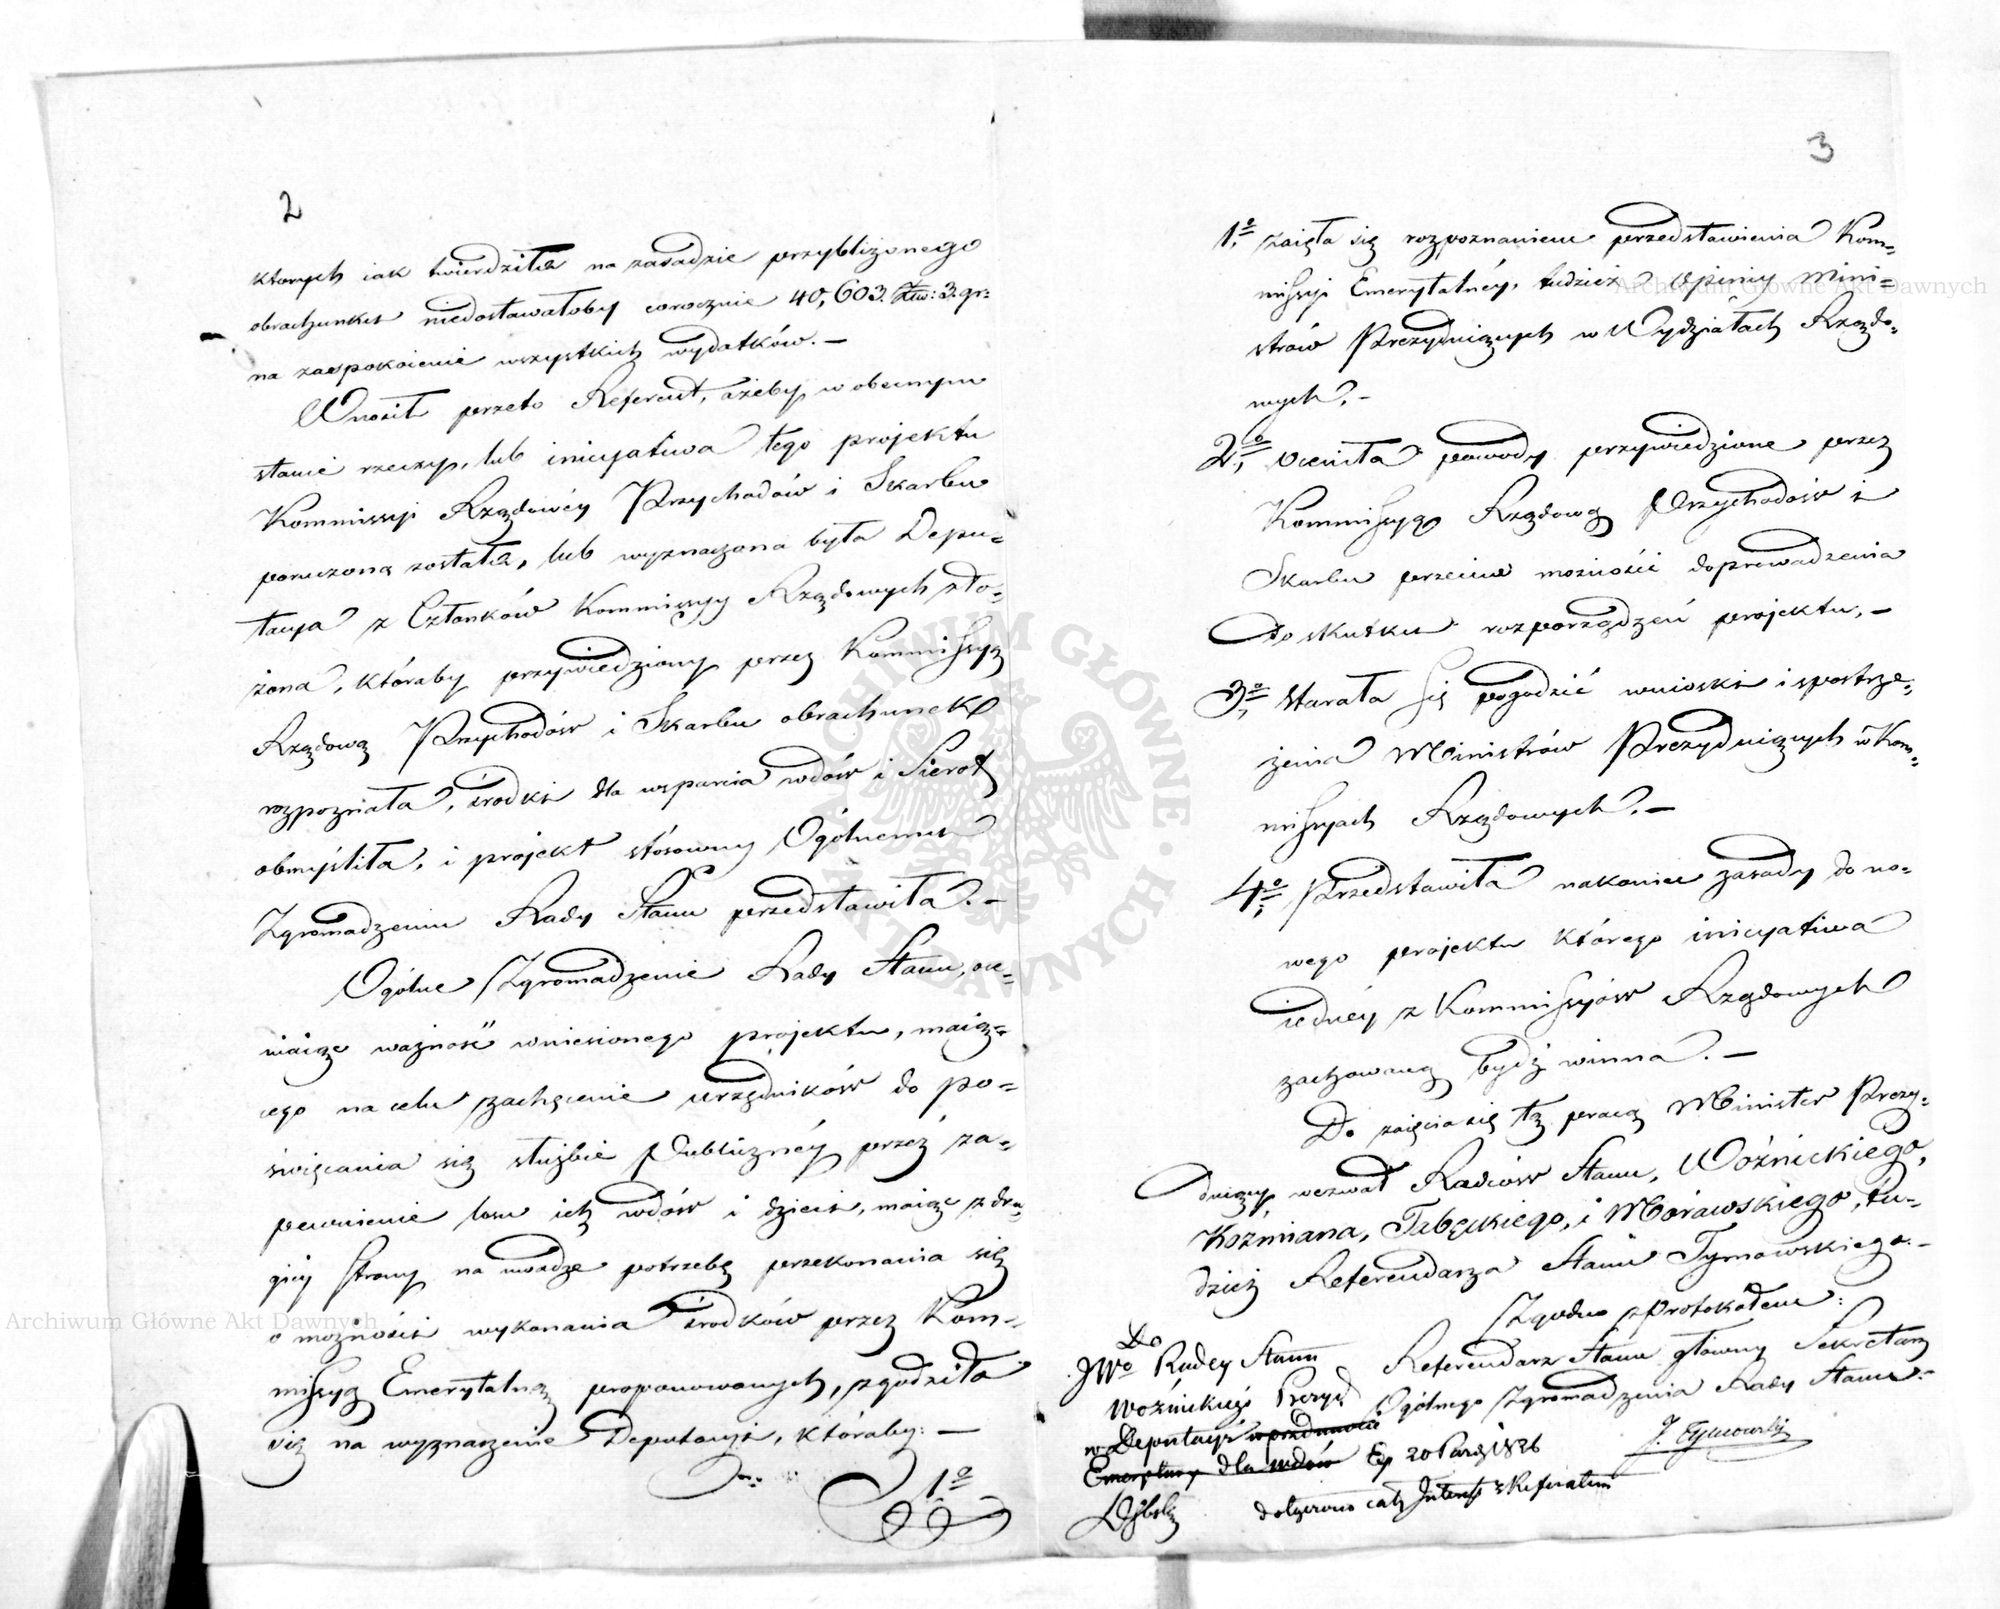 2
ktorych iak twierdziła na zasadzie przybliżonego
obrachunku niedostawałoby corocznie 40,603. złtw: 3. gr:
na zaspokoienie wszystkich wydatków. —
Wnosił przeto Referent, ażeby w obecnym
stanie rzeczy, lub inicyatiwa tego projektu
Kommissyi Rządowéy Przychodów i Skarbu
poruczoną została, lub wyznaczona była Depu-
tacya z Członków Kommissyy Rządowych zło-
żona, któraby przywiedziony przez Kommissyą
Rządową Przychodów i Skarbu obrachunek
rozpoznała, środki dla wsparcia wdów i Sierot
obmyśliła, i projekt stósowny Ogólnemu
Zgromadzeniu Rady Stanu przedstawiła. —
Ogólne Zgromadzenie Rady Stanu, oce-
niaiąc ważność wniesionego projektu, maią-
cego na celu zachęcenie urzędników do po-
święcania się służbie Publicznéy przez za-
pewnienie losu ich wdów i dzieci, maiąc z dru-
giéy strony na uwadze potrzebę przekonania się
o możności wykonania środków przez Kom-
missyą Emerytalną proponowanych, zgodziła
się na wyznaczenie Deputacyi, któraby: —
1º
3
1º, zaięła się rozpoznaniem przedstawienia Kom-
missyi Emerytalnéy, tudzież opiniy Mini-
strów Prezyduiących w Wydziałach Rządo-
wych. —
2º, oceniła powody przywiedzione przez
Kommissyą Rządową Przychodów i
Skarbu przeciw możności doprowadzenia
do skutku rozporządzeń projektu, —
3º, starała się pogodzić wnioski i spostrze-
żenia Ministrów Prezyduiących w Kom-
missyach Rządowych. —
4º, Przedstawiła nakoniec zasady do no-
wego projektu którego inicyatiwa
iednéy z Kommissyów Rządowych
zachowaną bydź winna. —
Do zaięcia się tą pracą Minister Prezy-
duiący wezwał Radców Stanu, Woźnickiego,
Koźmiana, Trbęckiego, i Morawskiego, tu-
dzież Referendarza Stanu Tymowskiego. —
Zgodno z Protokołem:
Referendarz Stanu główny Sekretarz
Ogólnego Zgromadzenia Rady Stanu. —
J. Tymowski
Do
JWo Radcy Stanu
Woźnickiego Prezyd
w Deputacyi w przedmiocie
Emerytury dla wdów Ex 20 Paźdź 1826
dołączono cały